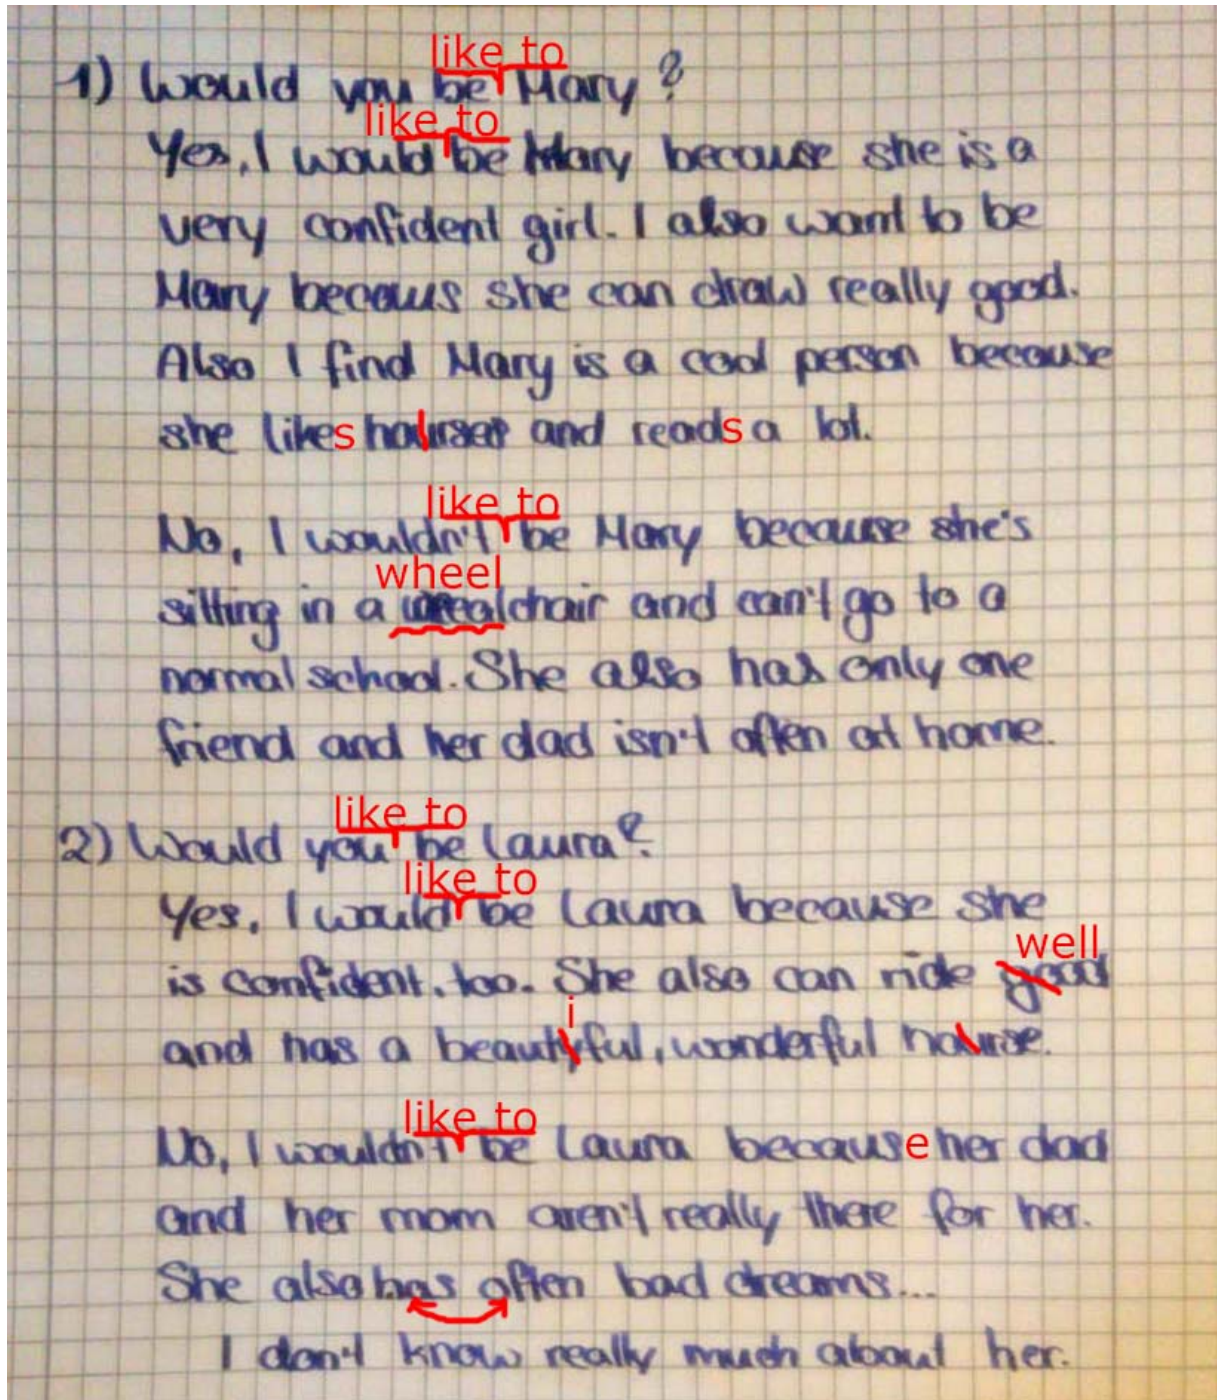 like to
1) Would you be Mary?
like to
Yes, I would be Mary because she is a
very confident girl. I also want to be
Mary becaus she can draw really good.
Also I find Mary is a cool person because
she likes hourses and reads a lot.
like to
No, I wouldn't be Mary because she's
wheel
sitting in a wheal chair and can't go to a
normal school. She also has only one
friend and her dad isn't often at home.
like to
2) Would you be Laura?
like to
Yes, I would be Laura because she
well
is confident, too. She also can ride good
i
and has a beautyful, wonderful hourse.
like to
No, I wouldn't be Laura because her dad
and her mom aren't really there for her.
She also has often bad dreams...
I don't know really much about her.